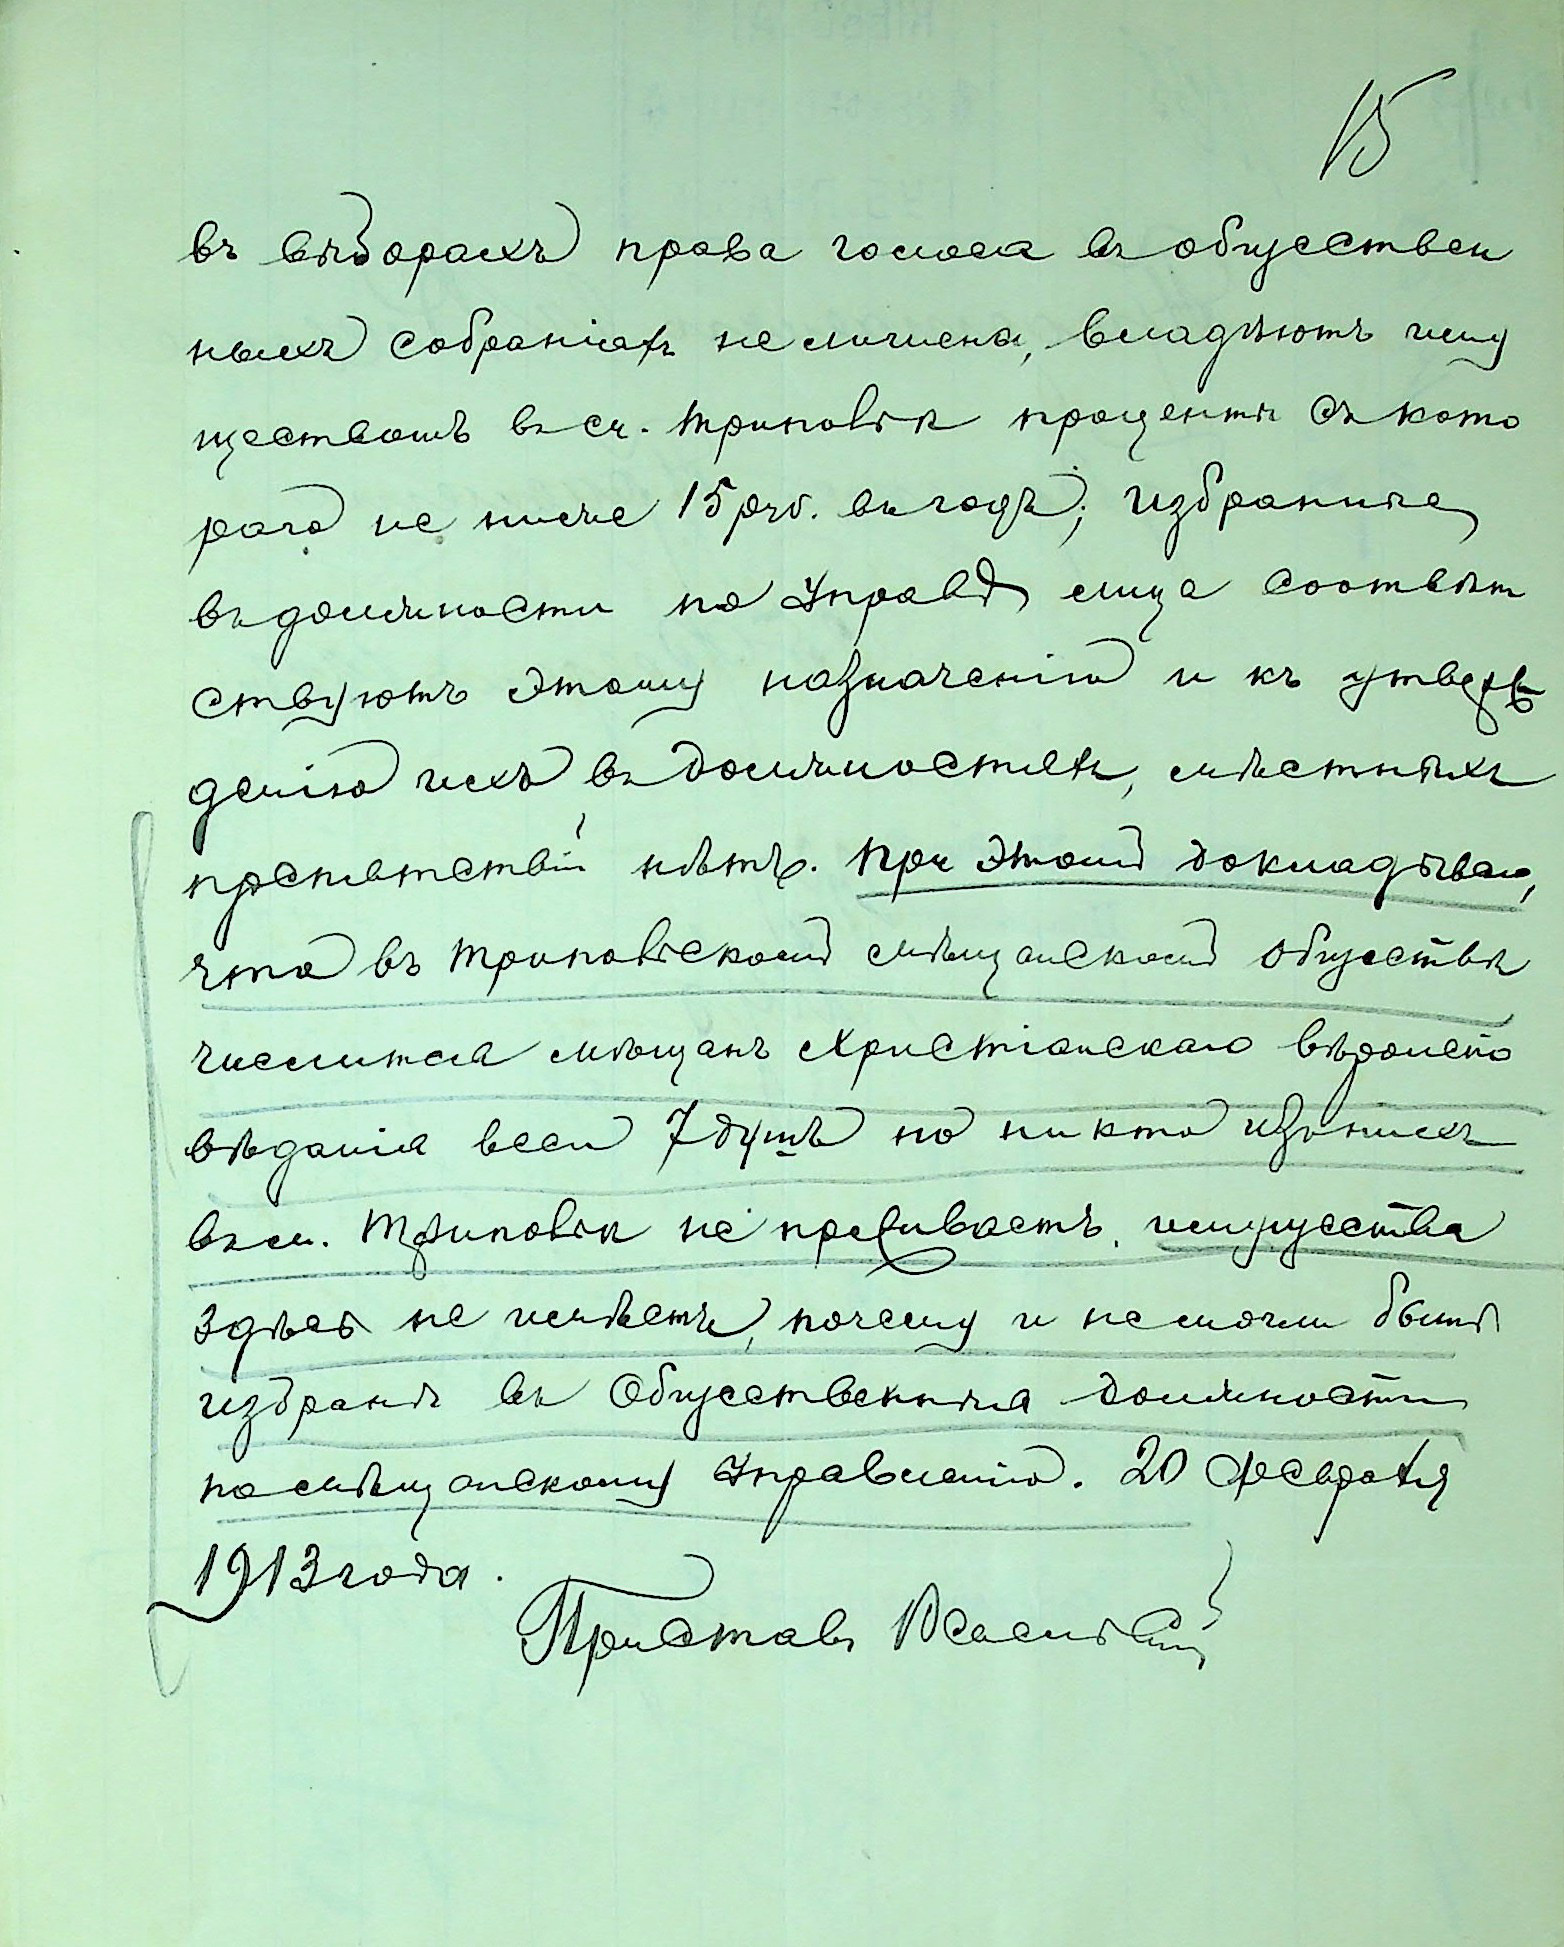 15
въ выборахъ права голоса въ обществен
ныхъ собраніяхъ не лишены, владѣютъ иму
ществомъ въ м. Триповкѣ проценты съ кото
раго не ниже 15 руб. въ годъ; избранные
въ должности по Управѣ лица соотвѣт
ствуютъ этому назначенію и къ утверж
денію ихъ въ должностяхъ, мѣстныхъ
препятствій нѣтъ. При этомъ докладываю,
что въ Трипольскомъ мѣщанскомъ обществѣ
числится мѣщанъ христіанскаго вѣроиспо
вѣданія всего 7 душъ но никто изъ нихъ
въ м. не проживаетъ, имущества
здѣсь не имѣетъ, почему и не могли быть
избраны въ Общественныя должности
по мѣщанскому Управленію. 20 Февраля
1913 года.
Приставъ